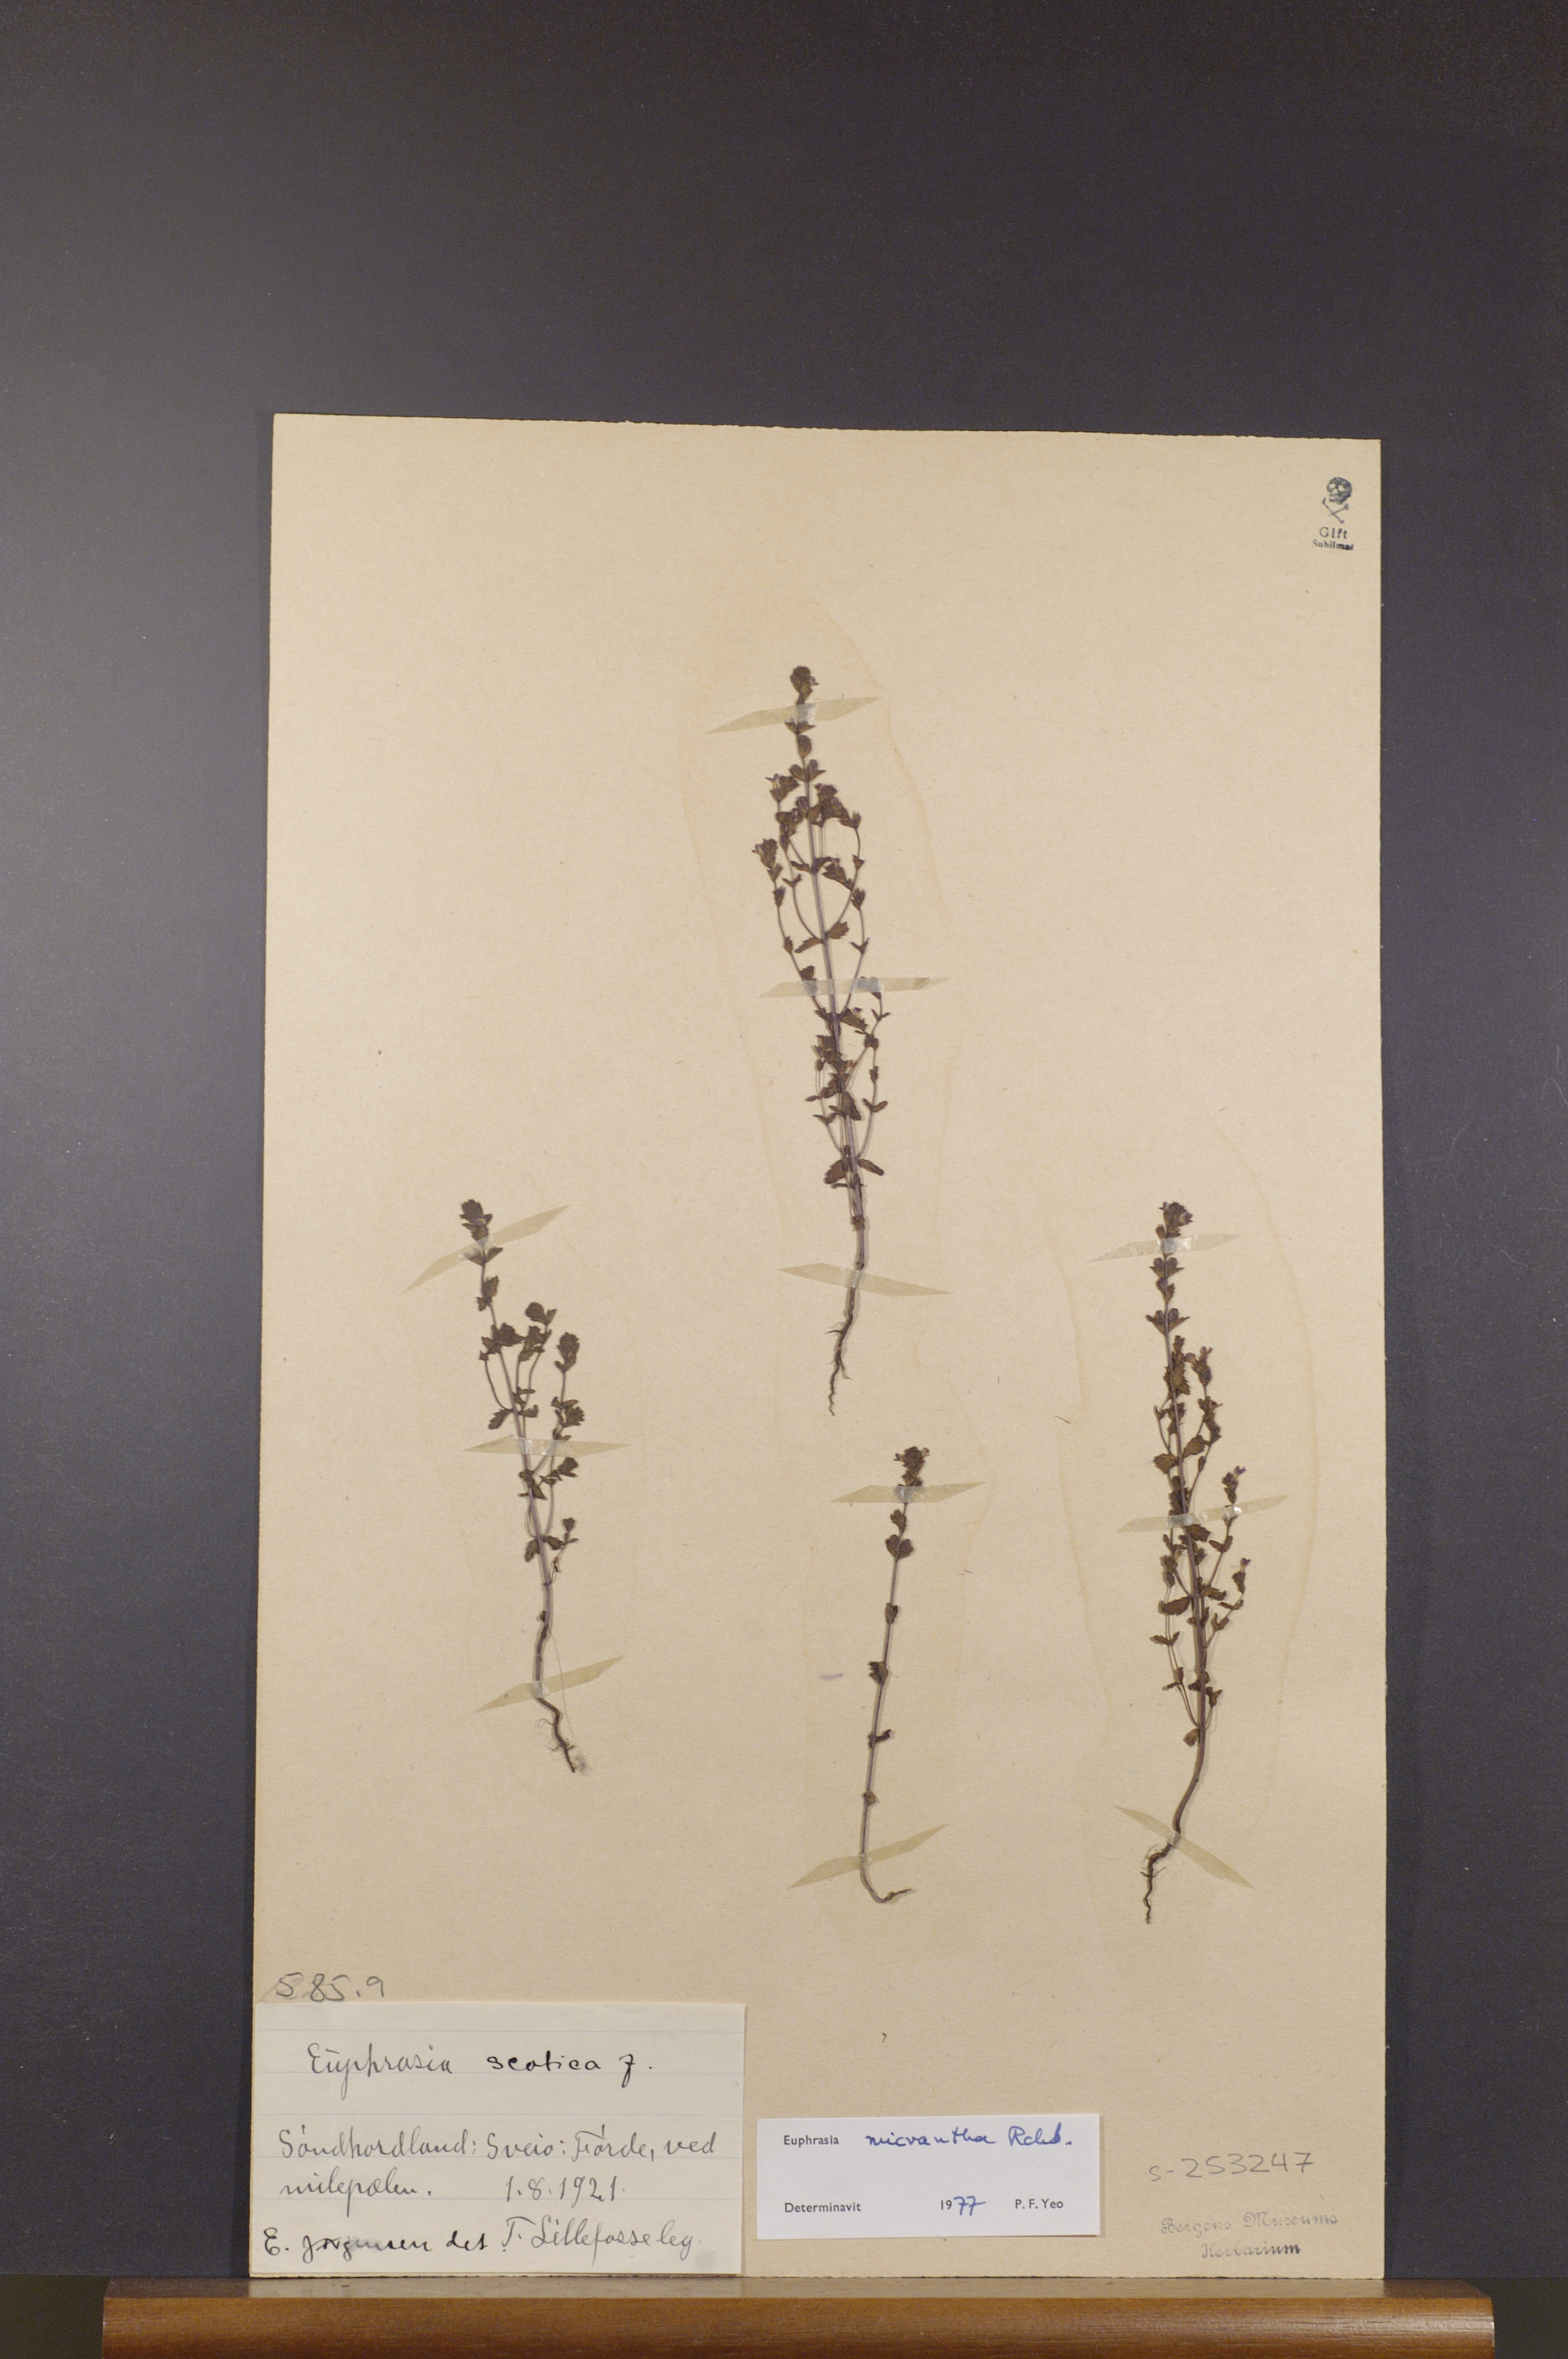 Gift
Sublimat
585.9
Euphrasia scotica f.
Söndhordland: Sveio: Förde, ved
milepælen. 1.8.1921.
E. Jørgensen det T. Lillefosse leg.
Euphrasia micrantha Rchb.
Determinavit 1977 P. F. Yeo
S-253247
Bergens Museums
Herbarium